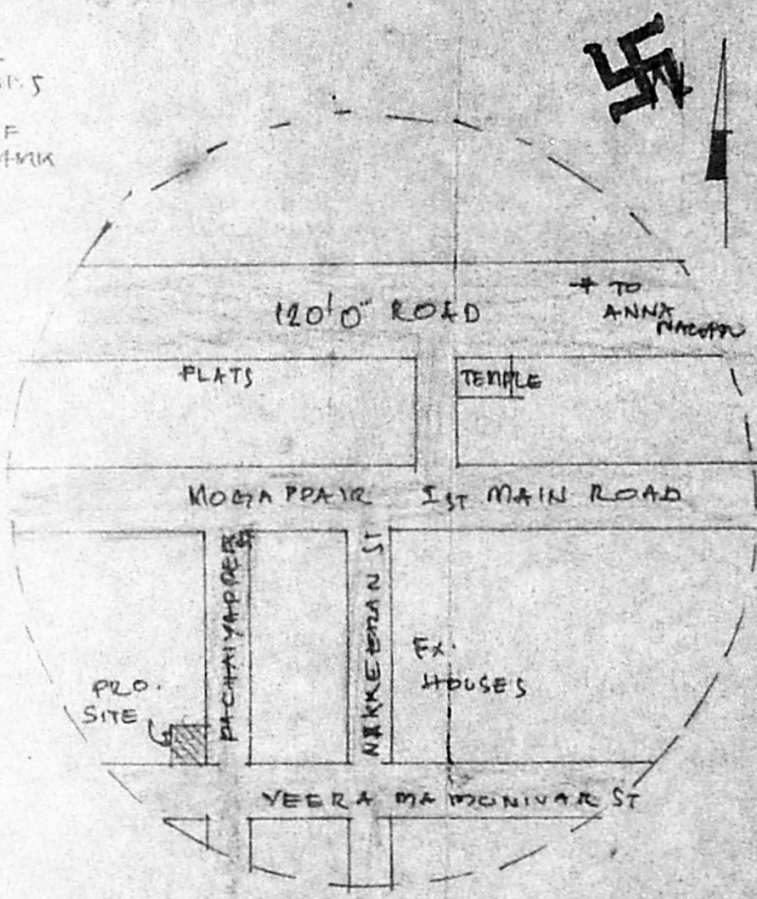 120'0" ROAD
TO
ANNA
NAGAR
FLATS
TEMPLE
MOGAPPAIR Ist MAIN ROAD
NAKKEERAN ST
EX.
HOUSES
PRO.
SITE
VEERA MA MONIVAR ST